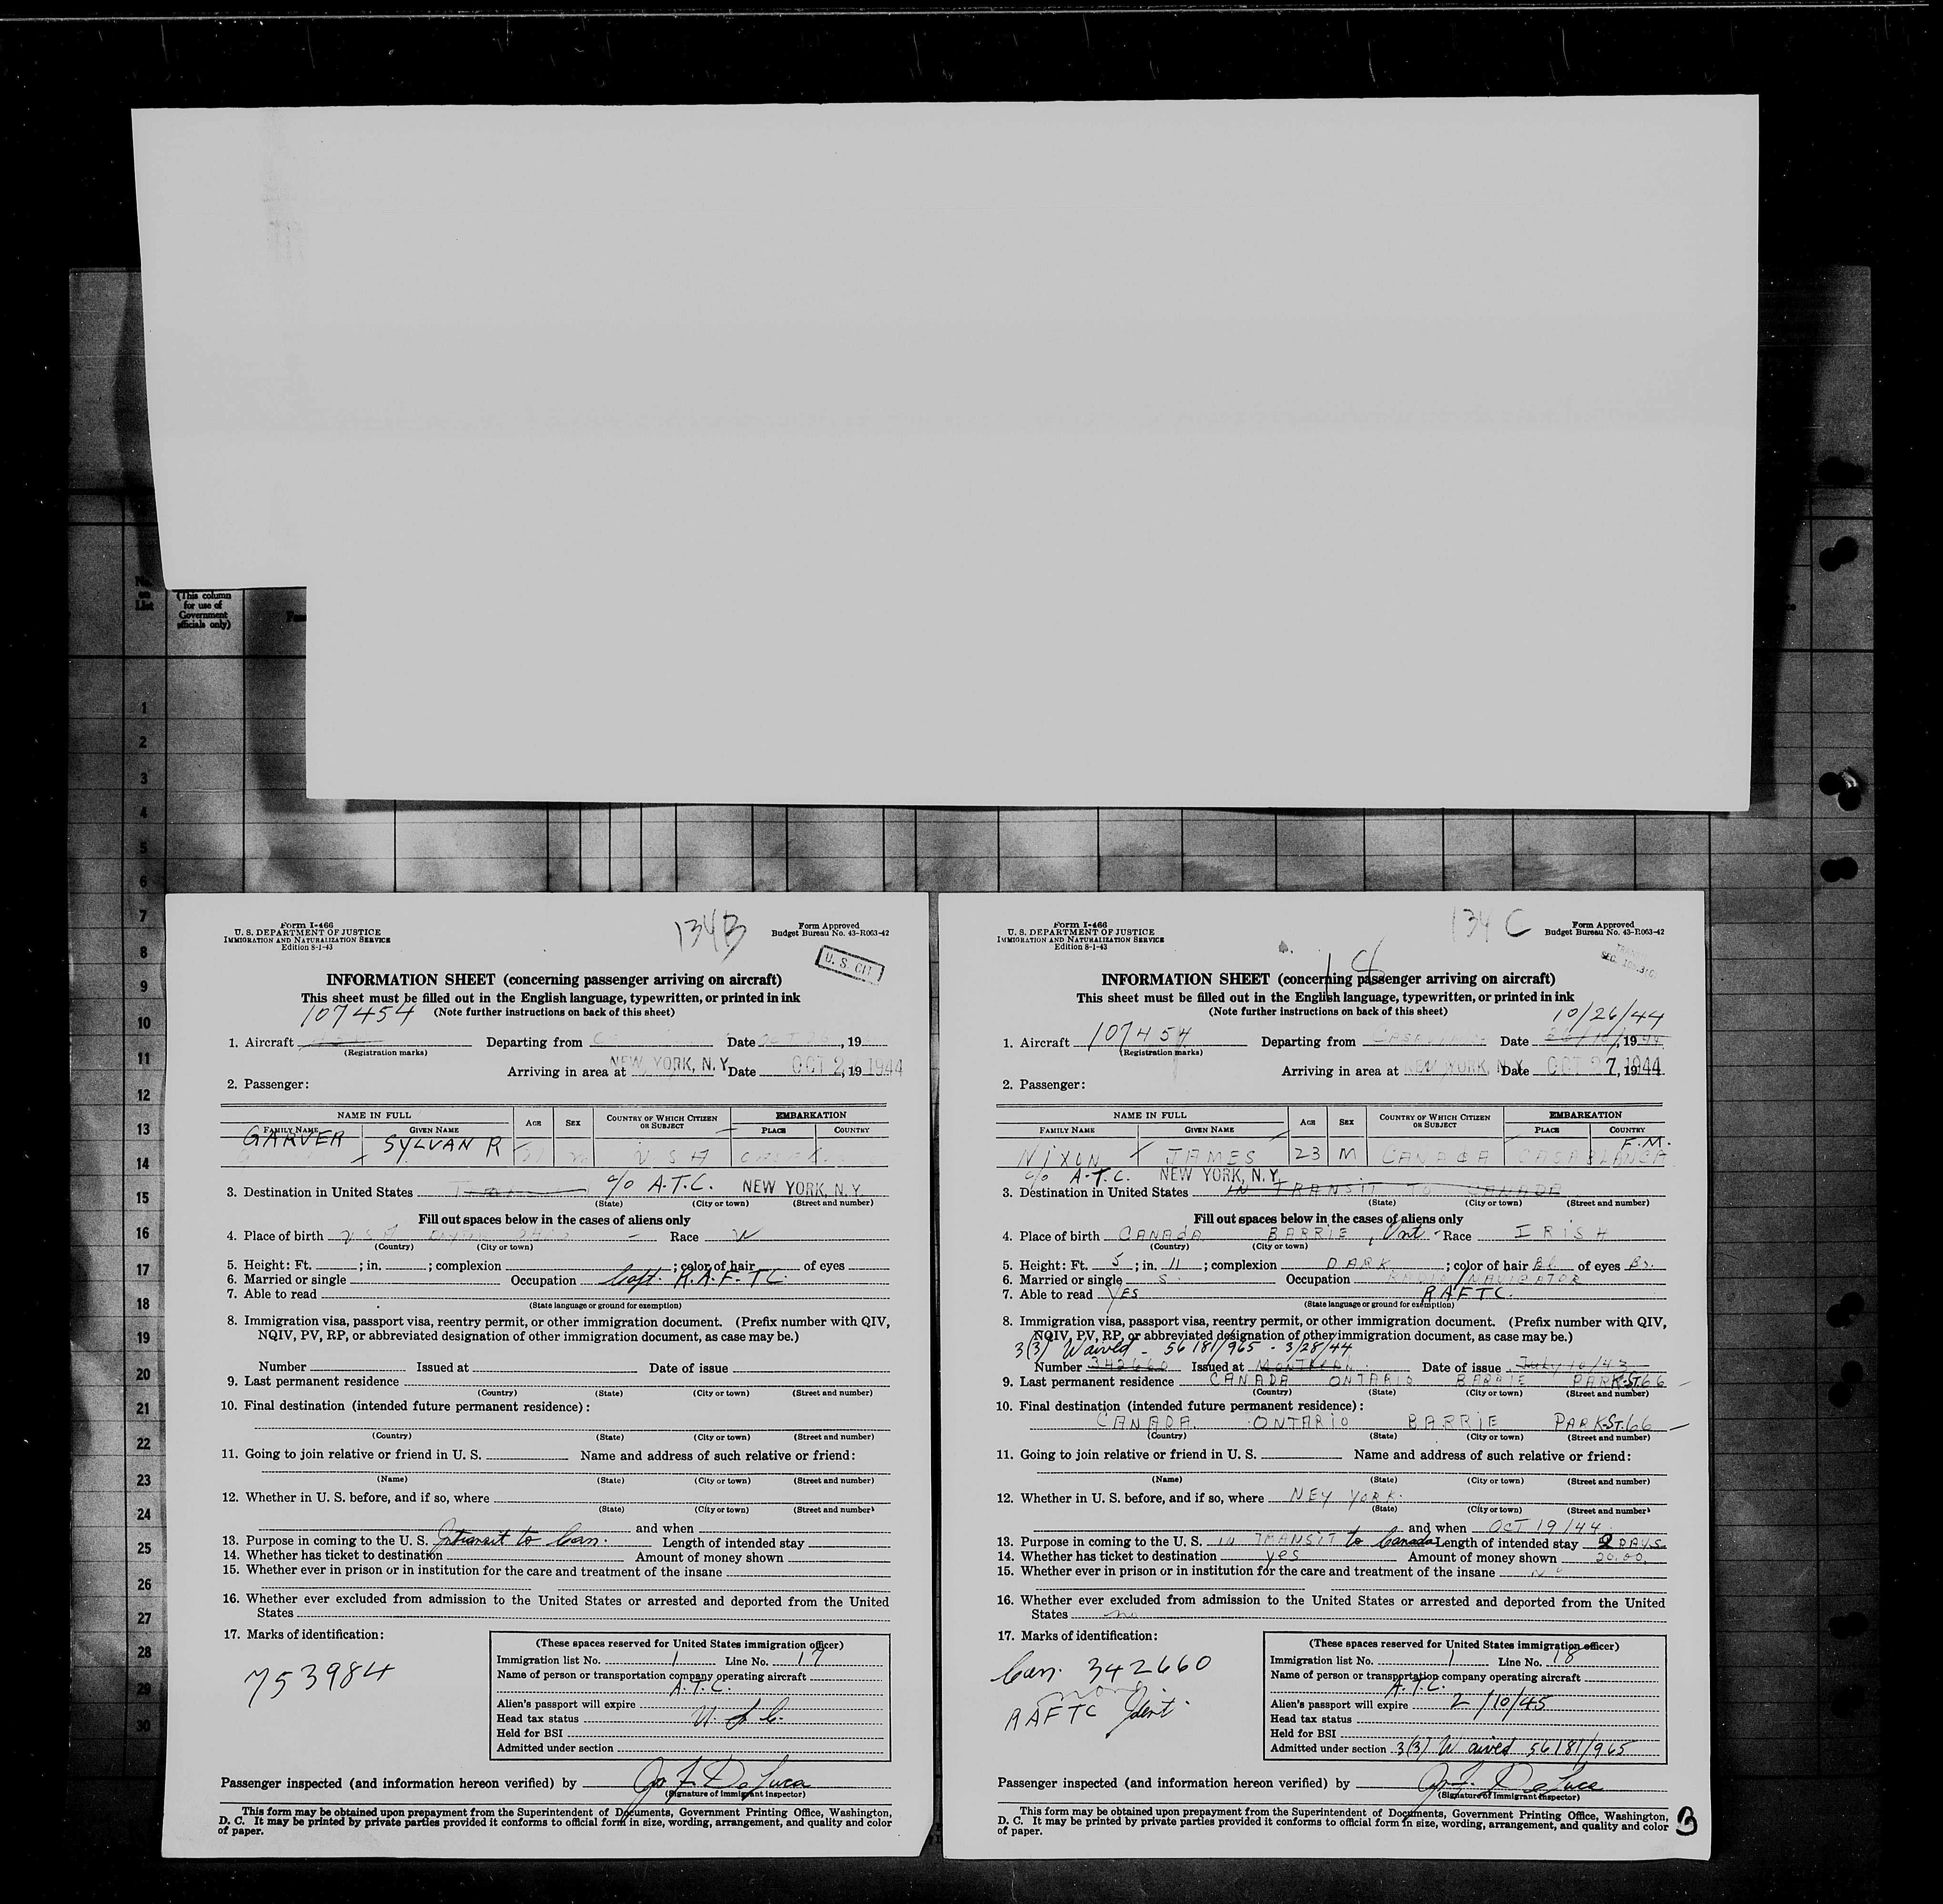 No. on List
(This column for use of Government officials only)
1
2
3
4
5
6
7
8
9
10
11
12
13
14
15
16
17
18
19
20
21
22
23
24
25
26
27
28
29
30
Form I-466
U. S. DEPARTMENT OF JUSTICE
IMMIGRATION AND NATURALIZATION SERVICE
Edition 8-1-43
134B
Form Approved
Budget Bureau No. 43-R063-42
U. S. CIT.
INFORMATION SHEET (concerning passenger arriving on aircraft)
This sheet must be filled out in the English language, typewritten, or printed in ink
(Note further instructions on back of this sheet)
107454
1. Aircraft Departing from Date , 19
(Registration marks)
Arriving in area at NEW YORK, N. Y. Date OCT 2 , 19 1944
2. Passenger:
NAME IN FULL AGE SEX COUNTRY OF WHICH CITIZEN OR SUBJECT EMBARKATION
FAMILY NAME GIVEN NAME PLACE COUNTRY
GARVER SYLVAN R U S A
3. Destination in United States c/o A.T.C. NEW YORK, N. Y.
(State) (City or town) (Street and number)
Fill out spaces below in the cases of aliens only
4. Place of birth U S A Race W
(Country) (City or town)
5. Height: Ft. ; in. ; complexion ; color of hair of eyes
6. Married or single Occupation Capt. R.A.F.T.C.
7. Able to read
(State language or ground for exemption)
8. Immigration visa, passport visa, reentry permit, or other immigration document. (Prefix number with QIV,
NQIV, PV, RP, or abbreviated designation of other immigration document, as case may be.)
Number Issued at Date of issue
9. Last permanent residence
(Country) (State) (City or town) (Street and number)
10. Final destination (intended future permanent residence):
(Country) (State) (City or town) (Street and number)
11. Going to join relative or friend in U. S. Name and address of such relative or friend:
(Name) (State) (City or town) (Street and number)
12. Whether in U. S. before, and if so, where
(State) (City or town) (Street and number)
and when
13. Purpose in coming to the U. S. Intransit to Can. Length of intended stay
14. Whether has ticket to destination Amount of money shown
15. Whether ever in prison or in institution for the care and treatment of the insane
16. Whether ever excluded from admission to the United States or arrested and deported from the United
States
17. Marks of identification:
753984
(These spaces reserved for United States immigration officer)
Immigration list No. 1 Line No. 17
Name of person or transportation company operating aircraft
A.T.C.
Alien's passport will expire
Head tax status U. S. C.
Held for BSI
Admitted under section
Passenger inspected (and information hereon verified) by Jo F. DeLuca
(Signature of immigrant inspector)
This form may be obtained upon prepayment from the Superintendent of Documents, Government Printing Office, Washington,
D. C. It may be printed by private parties provided it conforms to official form in size, wording, arrangement, and quality and color
of paper.
Form I-466
U. S. DEPARTMENT OF JUSTICE
IMMIGRATION AND NATURALIZATION SERVICE
Edition 8-1-43
134 C
Form Approved
Budget Bureau No. 43-R063-42
INFORMATION SHEET (concerning passenger arriving on aircraft)
This sheet must be filled out in the English language, typewritten, or printed in ink
(Note further instructions on back of this sheet)
10/26/44
1. Aircraft 107454 Departing from Date , 19 44
(Registration marks)
Arriving in area at NEW YORK, N. Y. Date OCT 27 , 1944
2. Passenger:
NAME IN FULL AGE SEX COUNTRY OF WHICH CITIZEN OR SUBJECT EMBARKATION
FAMILY NAME GIVEN NAME PLACE COUNTRY
F.M.
NIXON JAMES 23 M CANADA CASABLANCA
c/o A.T.C. NEW YORK, N. Y.
3. Destination in United States IN TRANSIT TO CANADA
(State) (City or town) (Street and number)
Fill out spaces below in the cases of aliens only
4. Place of birth CANADA BARRIE, Ont. Race IRISH
(Country) (City or town)
5. Height: Ft. 5 ; in. 11 ; complexion DARK ; color of hair BL of eyes Br.
6. Married or single S. Occupation RADIO/NAVIGATOR
7. Able to read YES RAFTC.
(State language or ground for exemption)
8. Immigration visa, passport visa, reentry permit, or other immigration document. (Prefix number with QIV,
NQIV, PV, RP, or abbreviated designation of other immigration document, as case may be.)
3(3) Waived - 56181/965 - 3/28/44
Number 342660 Issued at MONTREAL Date of issue July 10/43
9. Last permanent residence CANADA ONTARIO BARRIE PARK ST. 66
(Country) (State) (City or town) (Street and number)
10. Final destination (intended future permanent residence):
CANADA ONTARIO BARRIE PARK ST. 66
(Country) (State) (City or town) (Street and number)
11. Going to join relative or friend in U. S. Name and address of such relative or friend:
(Name) (State) (City or town) (Street and number)
12. Whether in U. S. before, and if so, where NEY YORK.
(State) (City or town) (Street and number)
and when OCT 19/44
13. Purpose in coming to the U. S. IN TRANSIT to Canada Length of intended stay 2 DAYS.
14. Whether has ticket to destination yes Amount of money shown 20.00
15. Whether ever in prison or in institution for the care and treatment of the insane No
16. Whether ever excluded from admission to the United States or arrested and deported from the United
States no
17. Marks of identification:
Can. 342660
RAFTC Ident.
(These spaces reserved for United States immigration officer)
Immigration list No. 1 Line No. 18
Name of person or transportation company operating aircraft
A.T.C.
Alien's passport will expire 2/10/45
Head tax status
Held for BSI
Admitted under section 3(3) Waived 56181/965
Passenger inspected (and information hereon verified) by Jo F. DeLuca
(Signature of immigrant inspector)
This form may be obtained upon prepayment from the Superintendent of Documents, Government Printing Office, Washington,
D. C. It may be printed by private parties provided it conforms to official form in size, wording, arrangement, and quality and color
of paper.
B